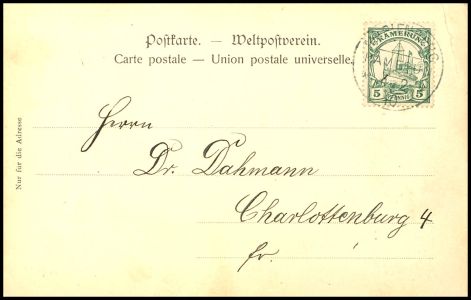 Postkarte. — Weltpostverein.
Carte postale — Union postale universelle.
KAMERUN
5 PFENNIG 5
Nur für die Adresse
Herrn
Dr. Dahmann
Charlottenburg 4
fr.